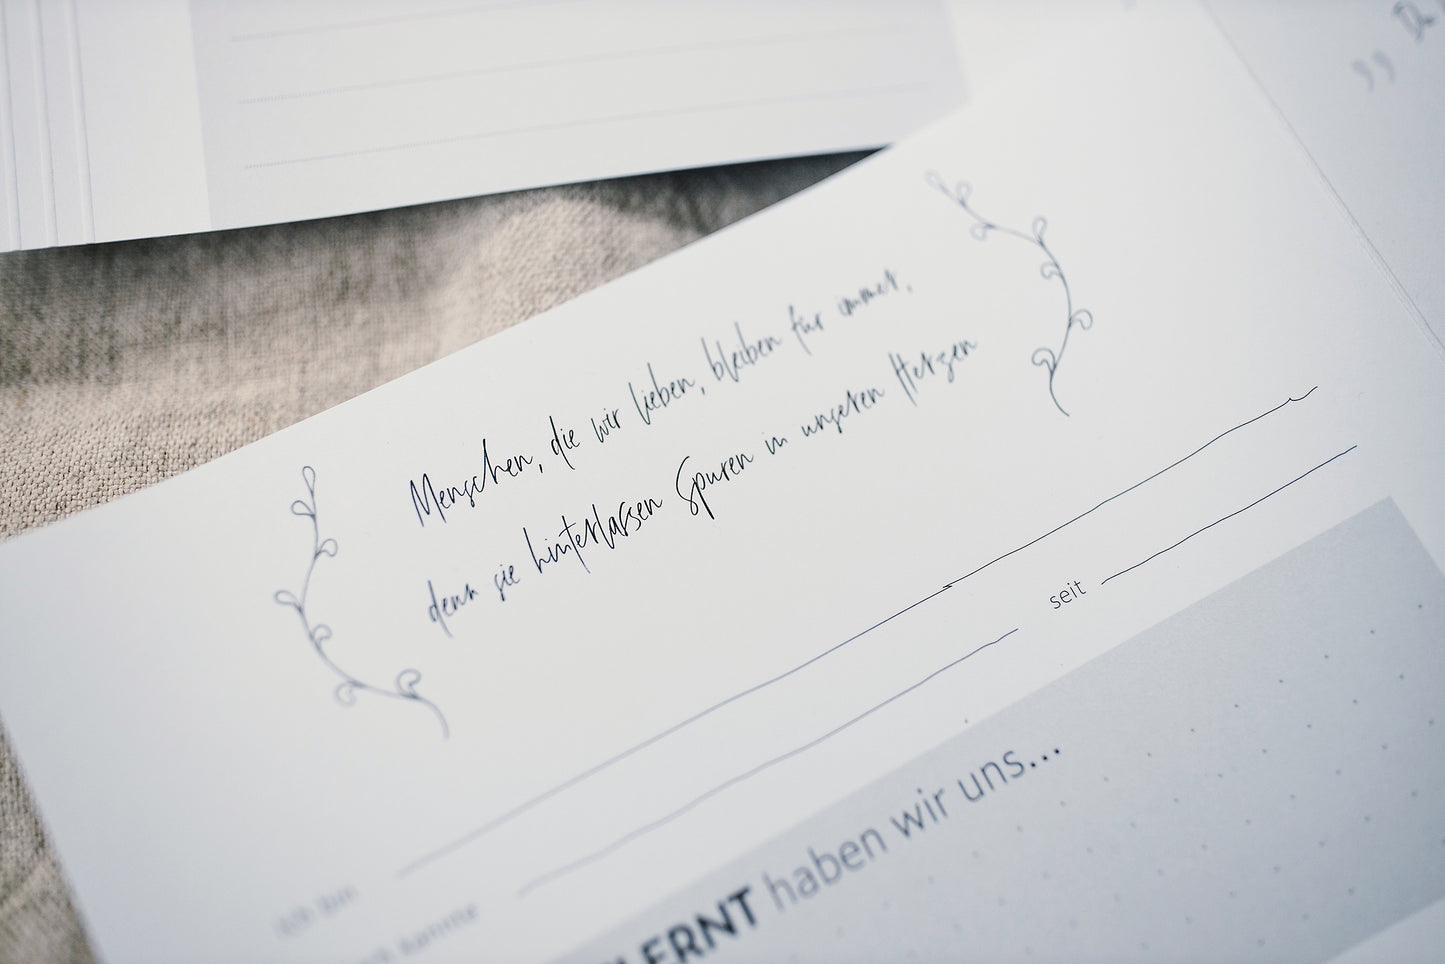 Menschen, die wir lieben, bleiben für immer,
denn sie hinterlassen Spuren in unseren Herzen
ich bin
ich kannte seit
LERNT haben wir uns...